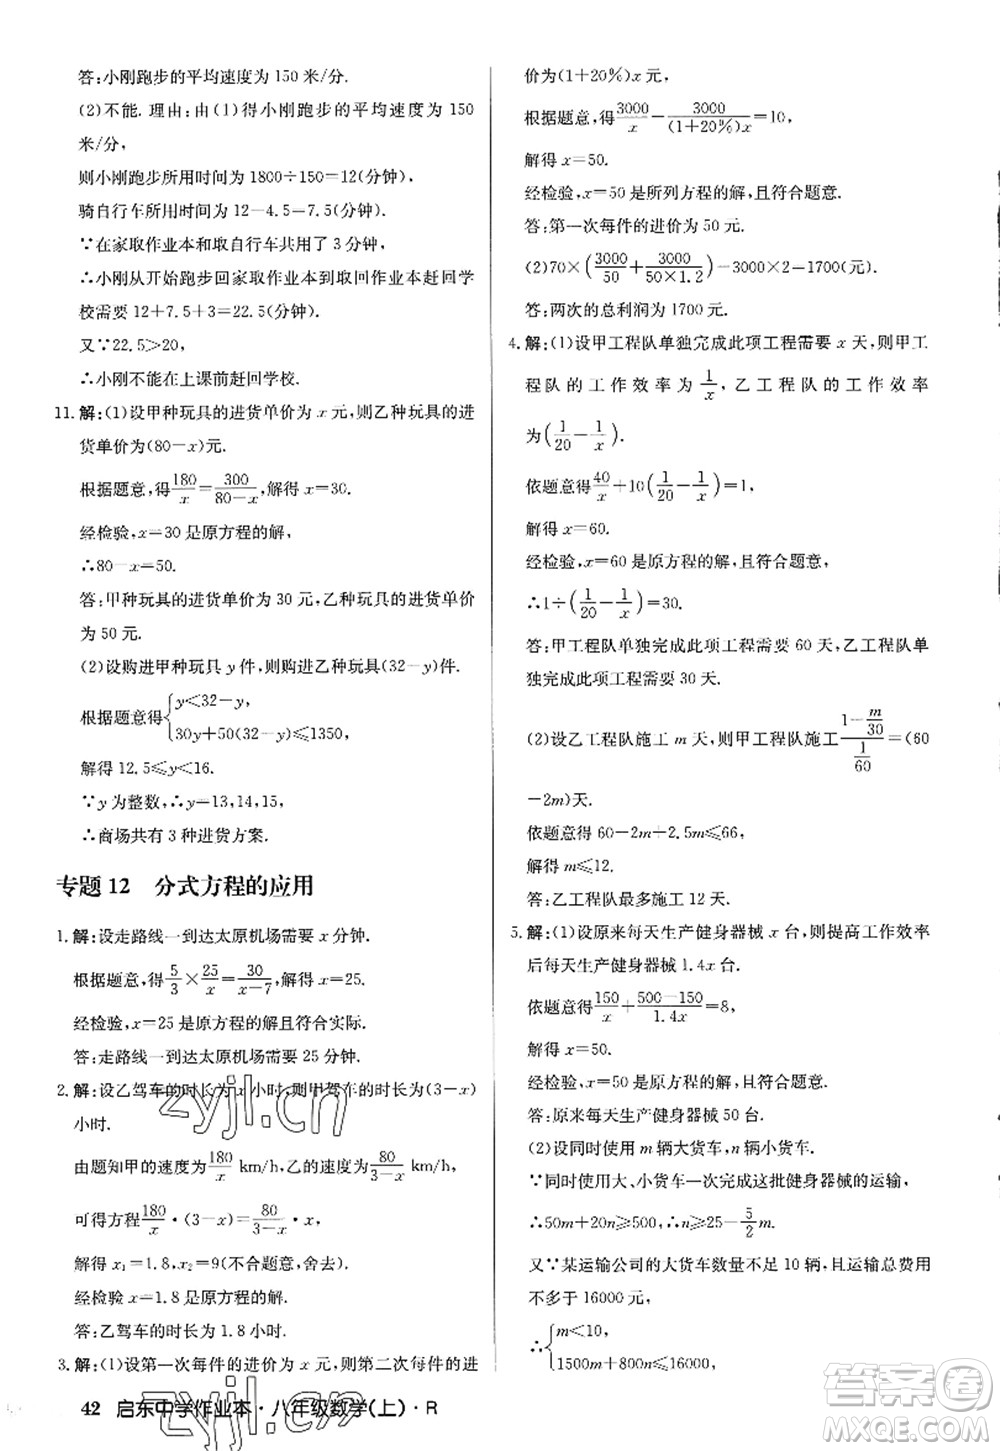 答:小刚跑步的平均速度为 150 米/分.
(2)不能. 理由:由(1)得小刚跑步的平均速度为 150
米/分,
则小刚跑步所用时间为 1800÷150=12(分钟),
骑自行车所用时间为 12-4.5=7.5(分钟),
∵在家取作业本和取自行车共用了 3 分钟,
∴小刚从开始跑步回家取作业本到取作业本赶回学
校需要 12+7.5+3=22.5(分钟).
又∵22.5>20,
∴小刚不能在上课前赶回学校.
11. 解:(1)设甲种玩具的进货单价为 x 元,则乙种玩具的进
货单价为(80-x)元.
根据题意,得 180/x = 300/(80-x),解得 x=30.
经检验,x=30 是原方程的解,
∴80-x=50.
答:甲种玩具的进货单价为 30 元,乙种玩具的进货单价
为 50 元.
(2)设购进甲种玩具 y 件,则购进乙种玩具(32-y)件.
根据题意得{y<32-y,
30y+50(32-y)≤1350,
解得 12.5≤y<16.
∵y 为整数,∴y=13,14,15,
∴商场共有 3 种进货方案.
专题 12 分式方程的应用
1. 解:设走路线一到达太原机场需要 x 分钟.
根据题意,得 5/3 × 25/x = 30/(x-7),解得 x=25.
经检验,x=25 是原方程的解且符合实际.
答:走路线一到达太原机场需要 25 分钟.
2. 解:设乙驾车的时长为 x 小时,则甲驾车的时长为(3-x)
小时.
由题知甲的速度为 180/x km/h,乙的速度为 80/(3-x) km/h,
可得方程 180/x ·(3-x)= 80/(3-x) · x,
解得 x₁=1.8,x₂=9(不合题意,舍去).
经检验 x=1.8 是原方程的解.
答:乙驾车的时长为 1.8 小时.
3. 解:(1)设第一次每件的进价为 x 元,则第二次每件的进
价为(1+20%)x 元,
根据题意,得 3000/x - 3000/((1+20%)x) =10,
解得 x=50.
经检验,x=50 是所列方程的解,且符合题意.
答:第一次每件的进价为 50 元.
(2)70×(3000/50 + 3000/(50×1.2))-3000×2=1700(元).
答:两次的总利润为 1700 元.
4. 解:(1)设甲工程队单独完成此项工程需要 x 天,则甲工
程队的工作效率为 1/x,乙工程队的工作效率
为(1/20 - 1/x).
依题意得 40/x +10(1/20 - 1/x)=1,
解得 x=60.
经检验,x=60 是原方程的解,且符合题意,
∴1÷(1/20 - 1/60)=30.
答:甲工程队单独完成此项工程需要 60 天,乙工程队单
独完成此项工程需要 30 天.
(2)设乙工程队施工 m 天,则甲工程队施工 (1-m/30)/(1/60) =(60
-2m)天.
依题意得 60-2m+2.5m≤66,
解得 m≤12.
答:乙工程队最多施工 12 天.
5. 解:(1)设原来每天生产健身器械 x 台,则提高工作效率
后每天生产健身器械 1.4x 台.
依题意得 150/x + (500-150)/1.4x =8,
解得 x=50.
经检验,x=50 是原方程的解,且符合题意.
答:原来每天生产健身器械 50 台.
(2)设同时使用 m 辆大货车,n 辆小货车.
∵同时使用大、小货车一次完成这批健身器械的运输,
∴50m+20n≥500,∴n≥25- 5/2 m.
又∵某运输公司的大货车数量不足 10 辆,且运输费用
不多于 16000 元,
∴{m<10,
1500m+800n≤16000,
42 启东中学作业本·八年级数学(上)·R
zyjl.cn
zyjl.cn
答案圈
MXQE.COM